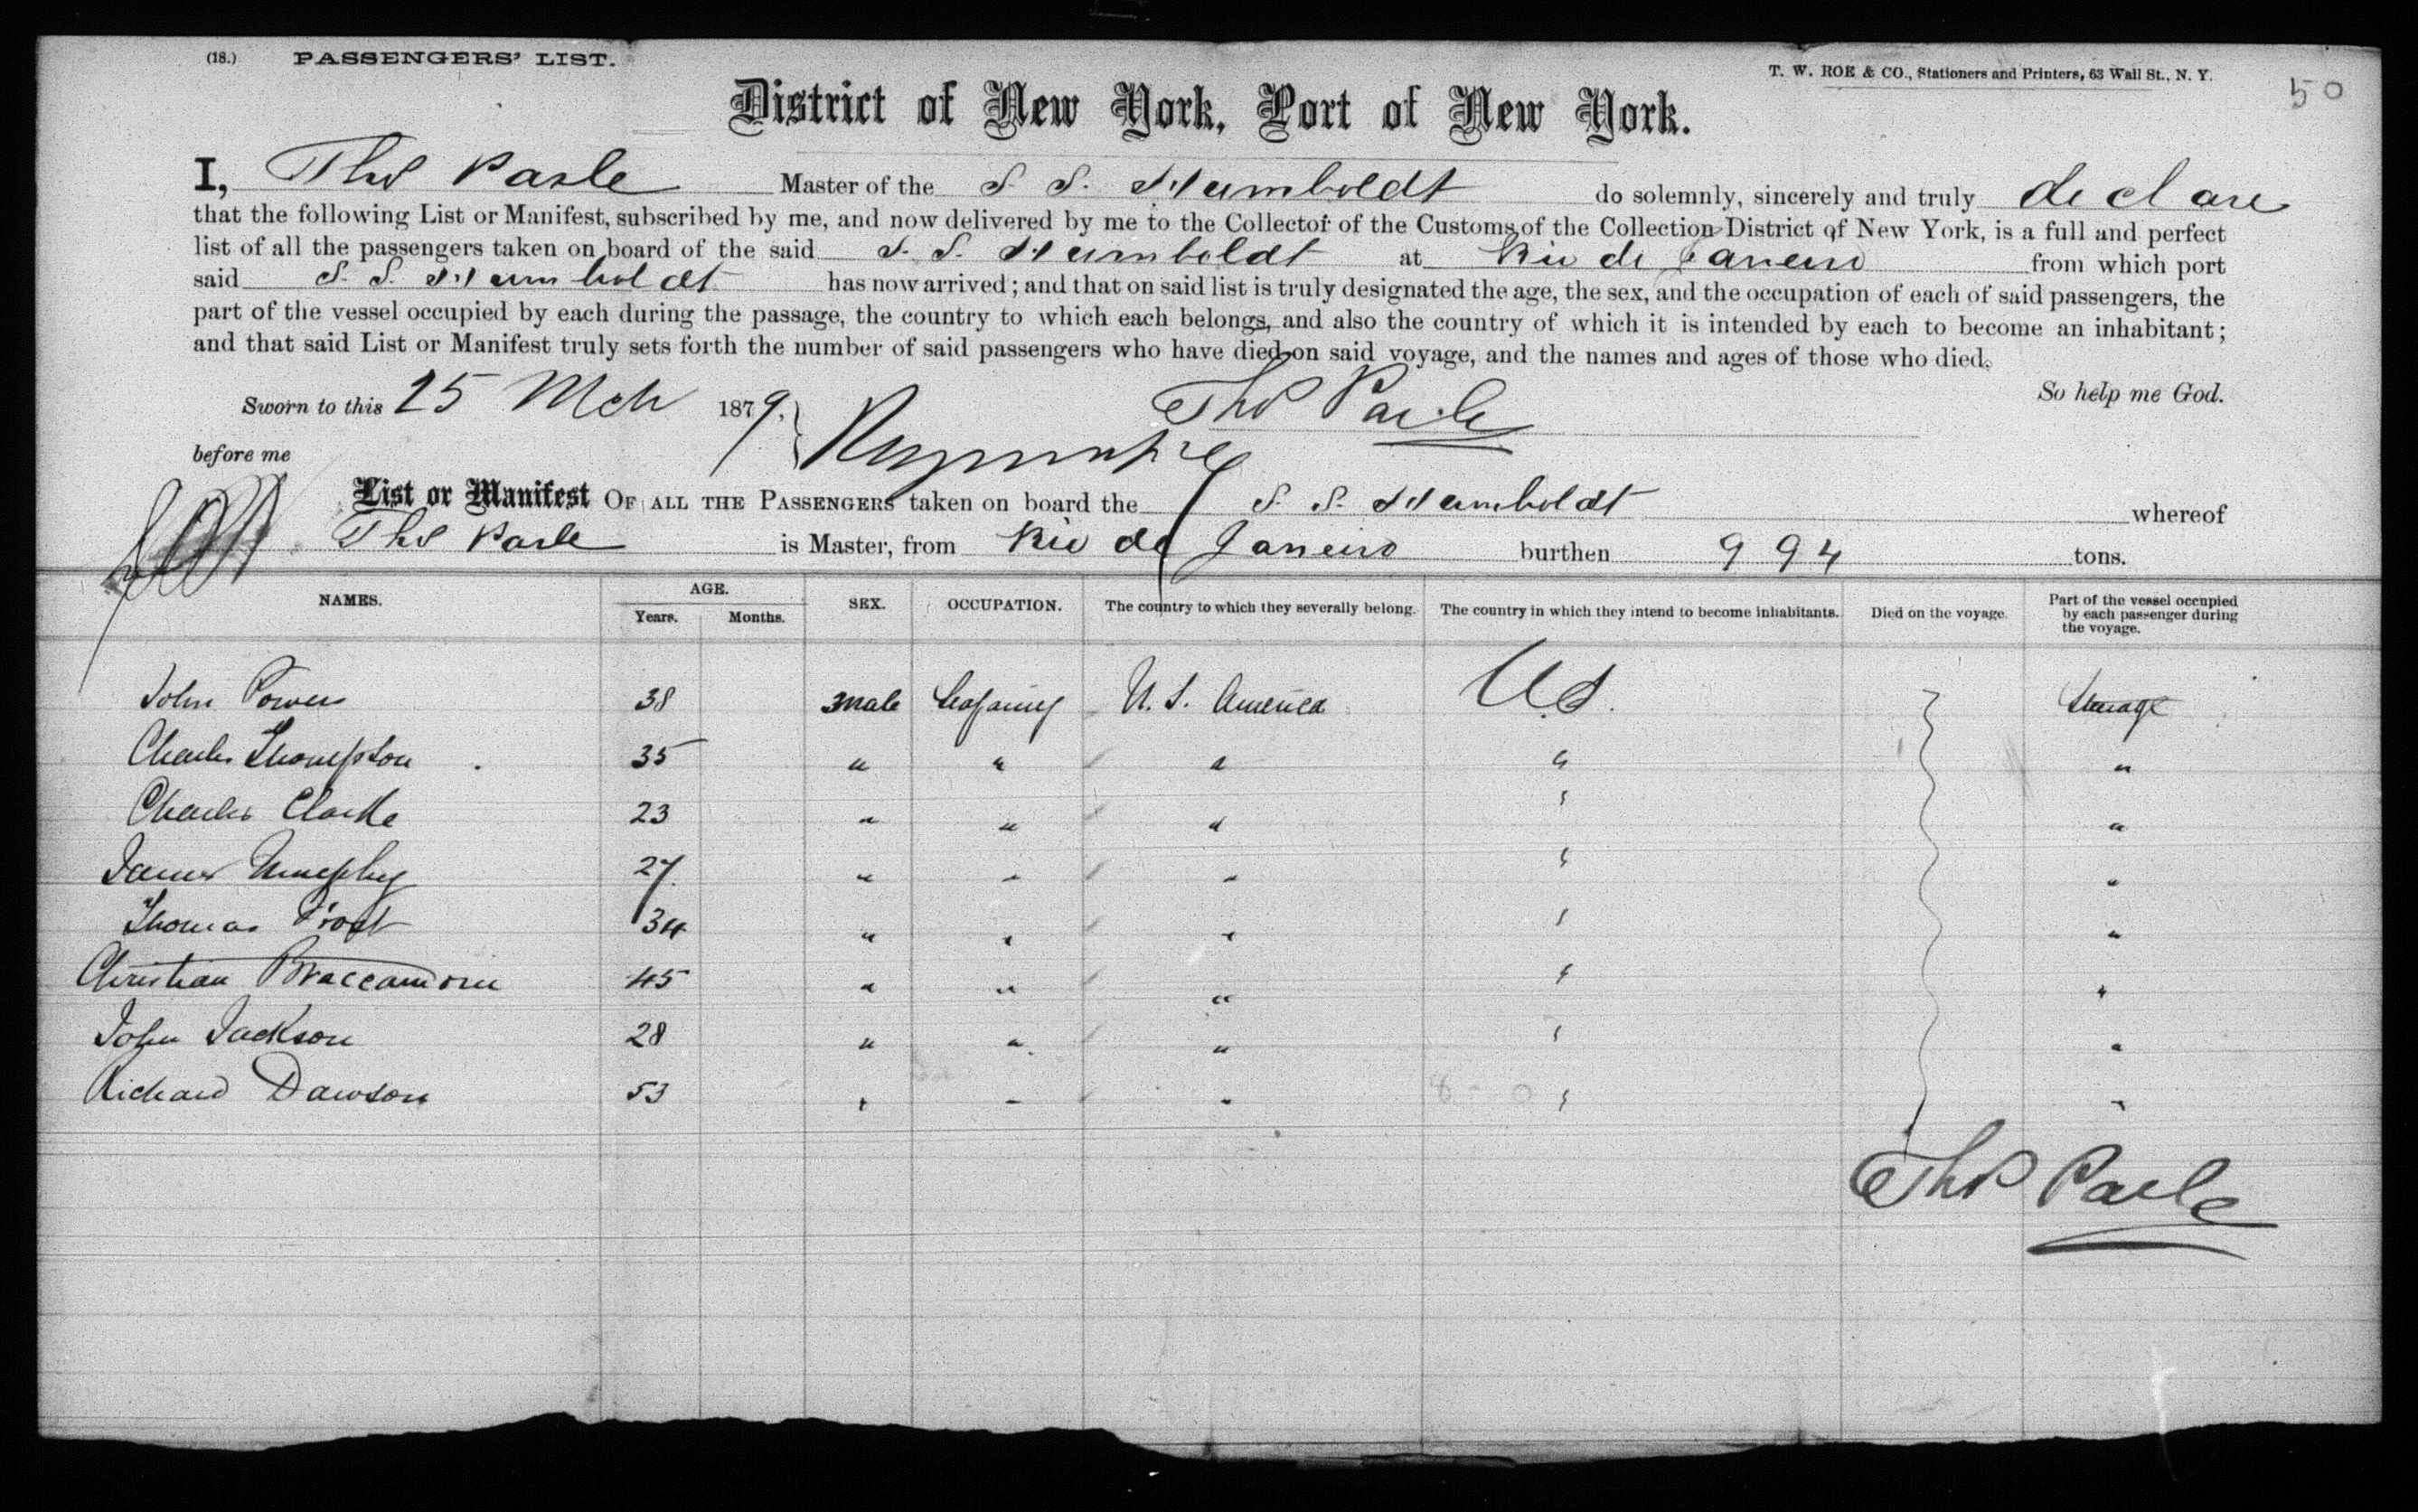 (18.) PASSENGERS' LIST.
T. W. ROE & CO., Stationers and Printers, 63 Wall St., N. Y.
50
District of New York, Port of New York.
I, Thos Parle Master of the S. S. Humboldt do solemnly, sincerely and truly declare
that the following List or Manifest, subscribed by me, and now delivered by me to the Collector of the Customs of the Collection District of New York, is a full and perfect
list of all the passengers taken on board of the said S. S. Humboldt at Rio de Janeiro from which port
said S. S. Humboldt has now arrived; and that on said list is truly designated the age, the sex, and the occupation of each of said passengers, the
part of the vessel occupied by each during the passage, the country to which each belongs, and also the country of which it is intended by each to become an inhabitant;
and that said List or Manifest truly sets forth the number of said passengers who have died on said voyage, and the names and ages of those who died.
So help me God.
Sworn to this 25 Mch 1879. Thos Parle
before me
List or Manifest OF ALL THE PASSENGERS taken on board the S. S. Humboldt whereof
Thos Parle is Master, from Rio de Janeiro burthen 994 tons.
NAMES. AGE. SEX. OCCUPATION. The country to which they severally belong. The country in which they intend to become inhabitants. Died on the voyage. Part of the vessel occupied by each passenger during the voyage.
Years. Months.
John Power 38 Male U. S. America U.S. Steerage
Charles Thompson 35 " " " " "
Charles Clarke 23 " " " " "
James Murphy 27 " " " " "
Thomas 34 " " " " "
Christian 45 " " " " "
John Jackson 28 " " " " "
Richard Dawson 53 " " " " "
Thos Parle